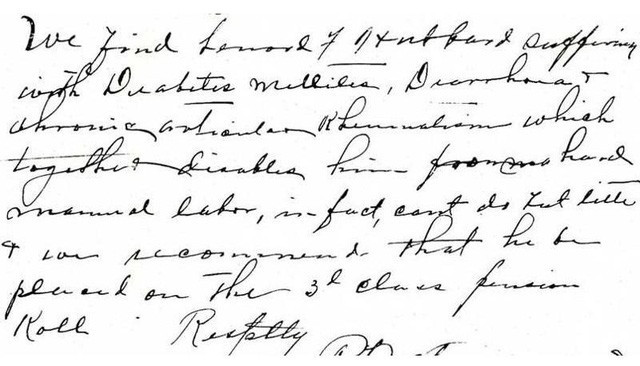 We find Lenord F Hubbard suffering
with Diabetis Mellites, Diarrhoea &
chronic articular Rheumatism which
together disables him from hard
manual labor, in fact, cant do but little
& we recommend that he be
placed on the 3d class pension
Roll Respttly